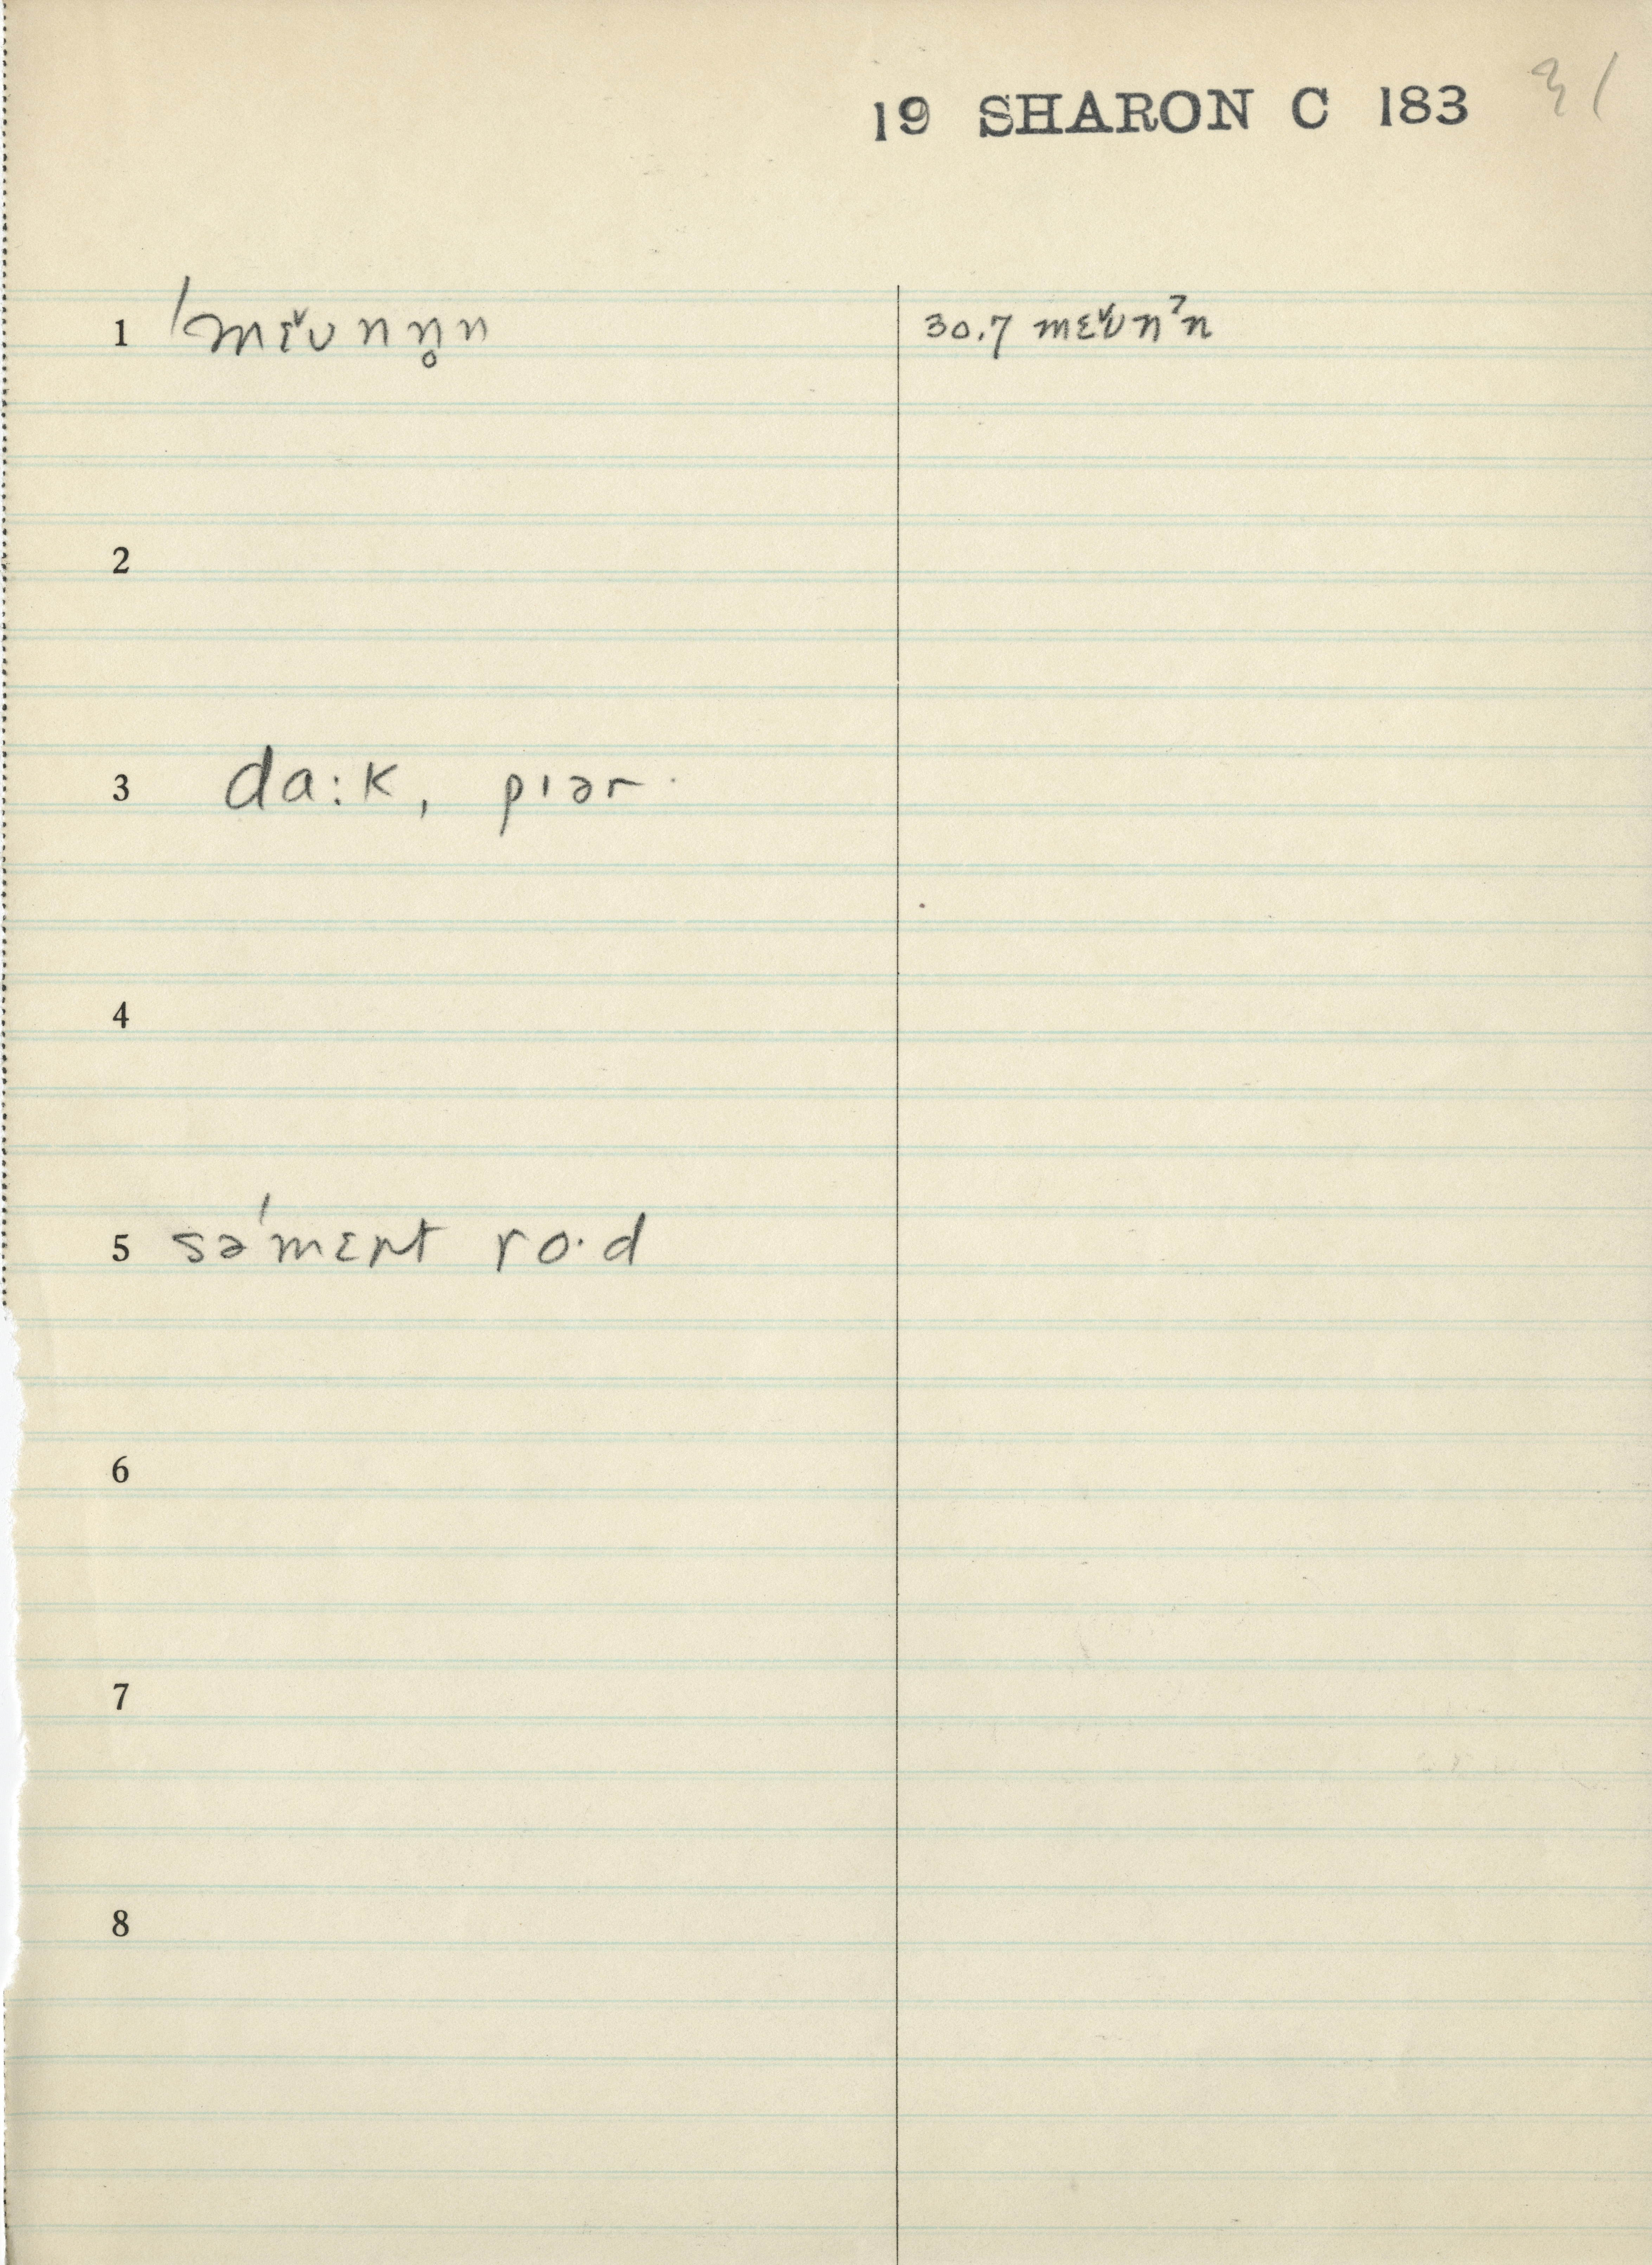 19 SHARON C 183 31
1 ˈmɛ̌ʊnn̥n 30.7 mɛ̌ʊnˀn
2
3 da:k, pɪər
4
5 səˈmɛnt ro·d
6
7
8